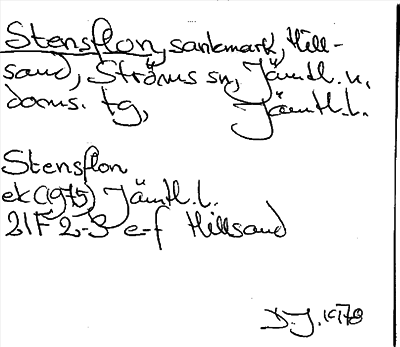 Stensflon, sankmark, Hill-
sand, Ströms sn, Jämtl. n.
doms. tg, Jämtl. l.
Stensflon
ek (1975) Jämtl. l.
21F 2-3 e-f Hillsand
D.J. 1978